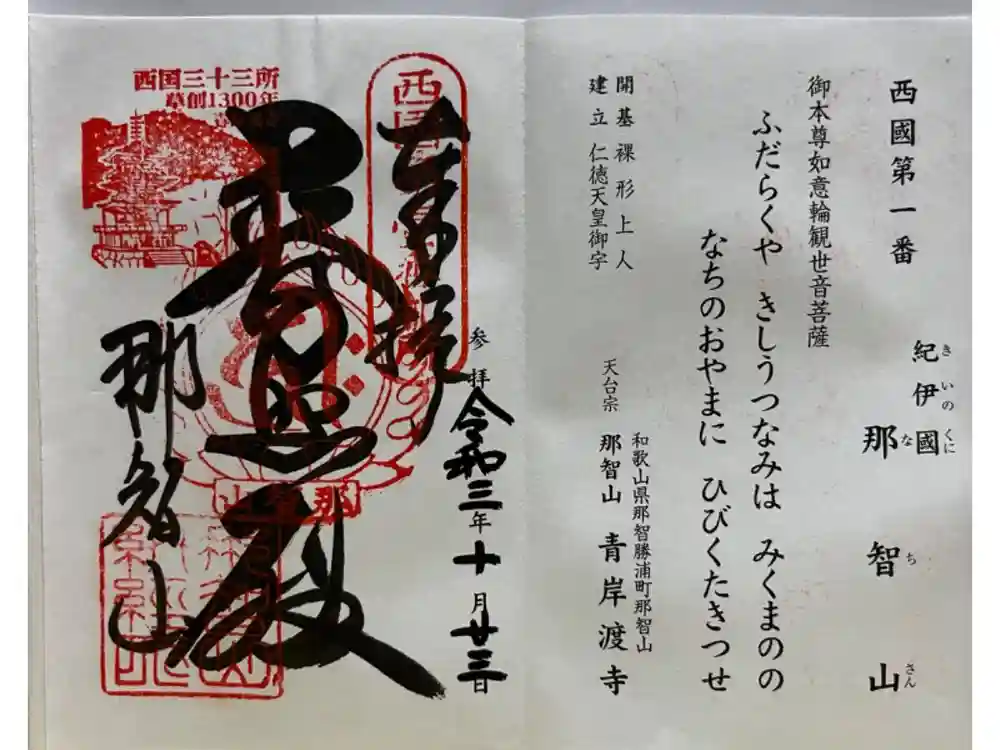 西國第一番
紀伊國
きいのくに
那智山
なちさん
御本尊如意輪観世音菩薩
ふだらくや きしうつなみは みくまのの
なちのおやまに ひびくたきつせ
開基 裸形上人
建立 仁徳天皇御宇
和歌山県那智勝浦町那智山
天台宗 那智山 青岸渡寺
奉拝
参拝令和三年十月廿三日
普照殿
那智山
西国三十三所
草創1300年
那智山